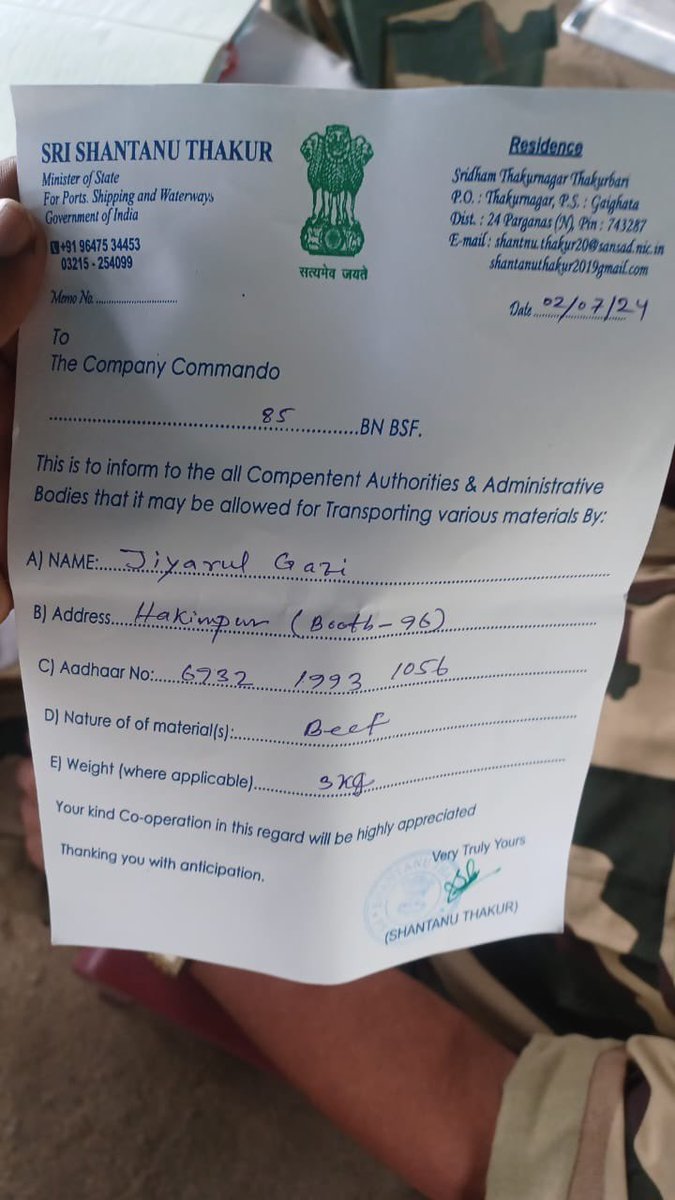 SRI SHANTANU THAKUR
Minister of State
For Ports, Shipping and Waterways
Government of India
+91 96475 34453
03215 - 254099
Memo No.
सत्यमेव जयते
Residence
Sridham Thakurnagar Thakurbari
P.O. : Thakurnagar, P.S. : Gaighata
Dist. : 24 Parganas (N), Pin : 743287
E-mail : shantnu.thakur20@sansad.nic.in
shantanuthakur2019gmail.com
Date 02/07/24
To
The Company Commando
85 BN BSF.
This is to inform to the all Compentent Authorities & Administrative
Bodies that it may be allowed for Transporting various materials By:
A) NAME: Jiyarul Gazi
B) Address Hakimpur (Booth-96)
C) Aadhaar No: 6732 1993 1056
D) Nature of of material(s): Beef
E) Weight (where applicable) 3 kg
Your kind Co-operation in this regard will be highly appreciated
Thanking you with anticipation.
Very Truly Yours
(SHANTANU THAKUR)